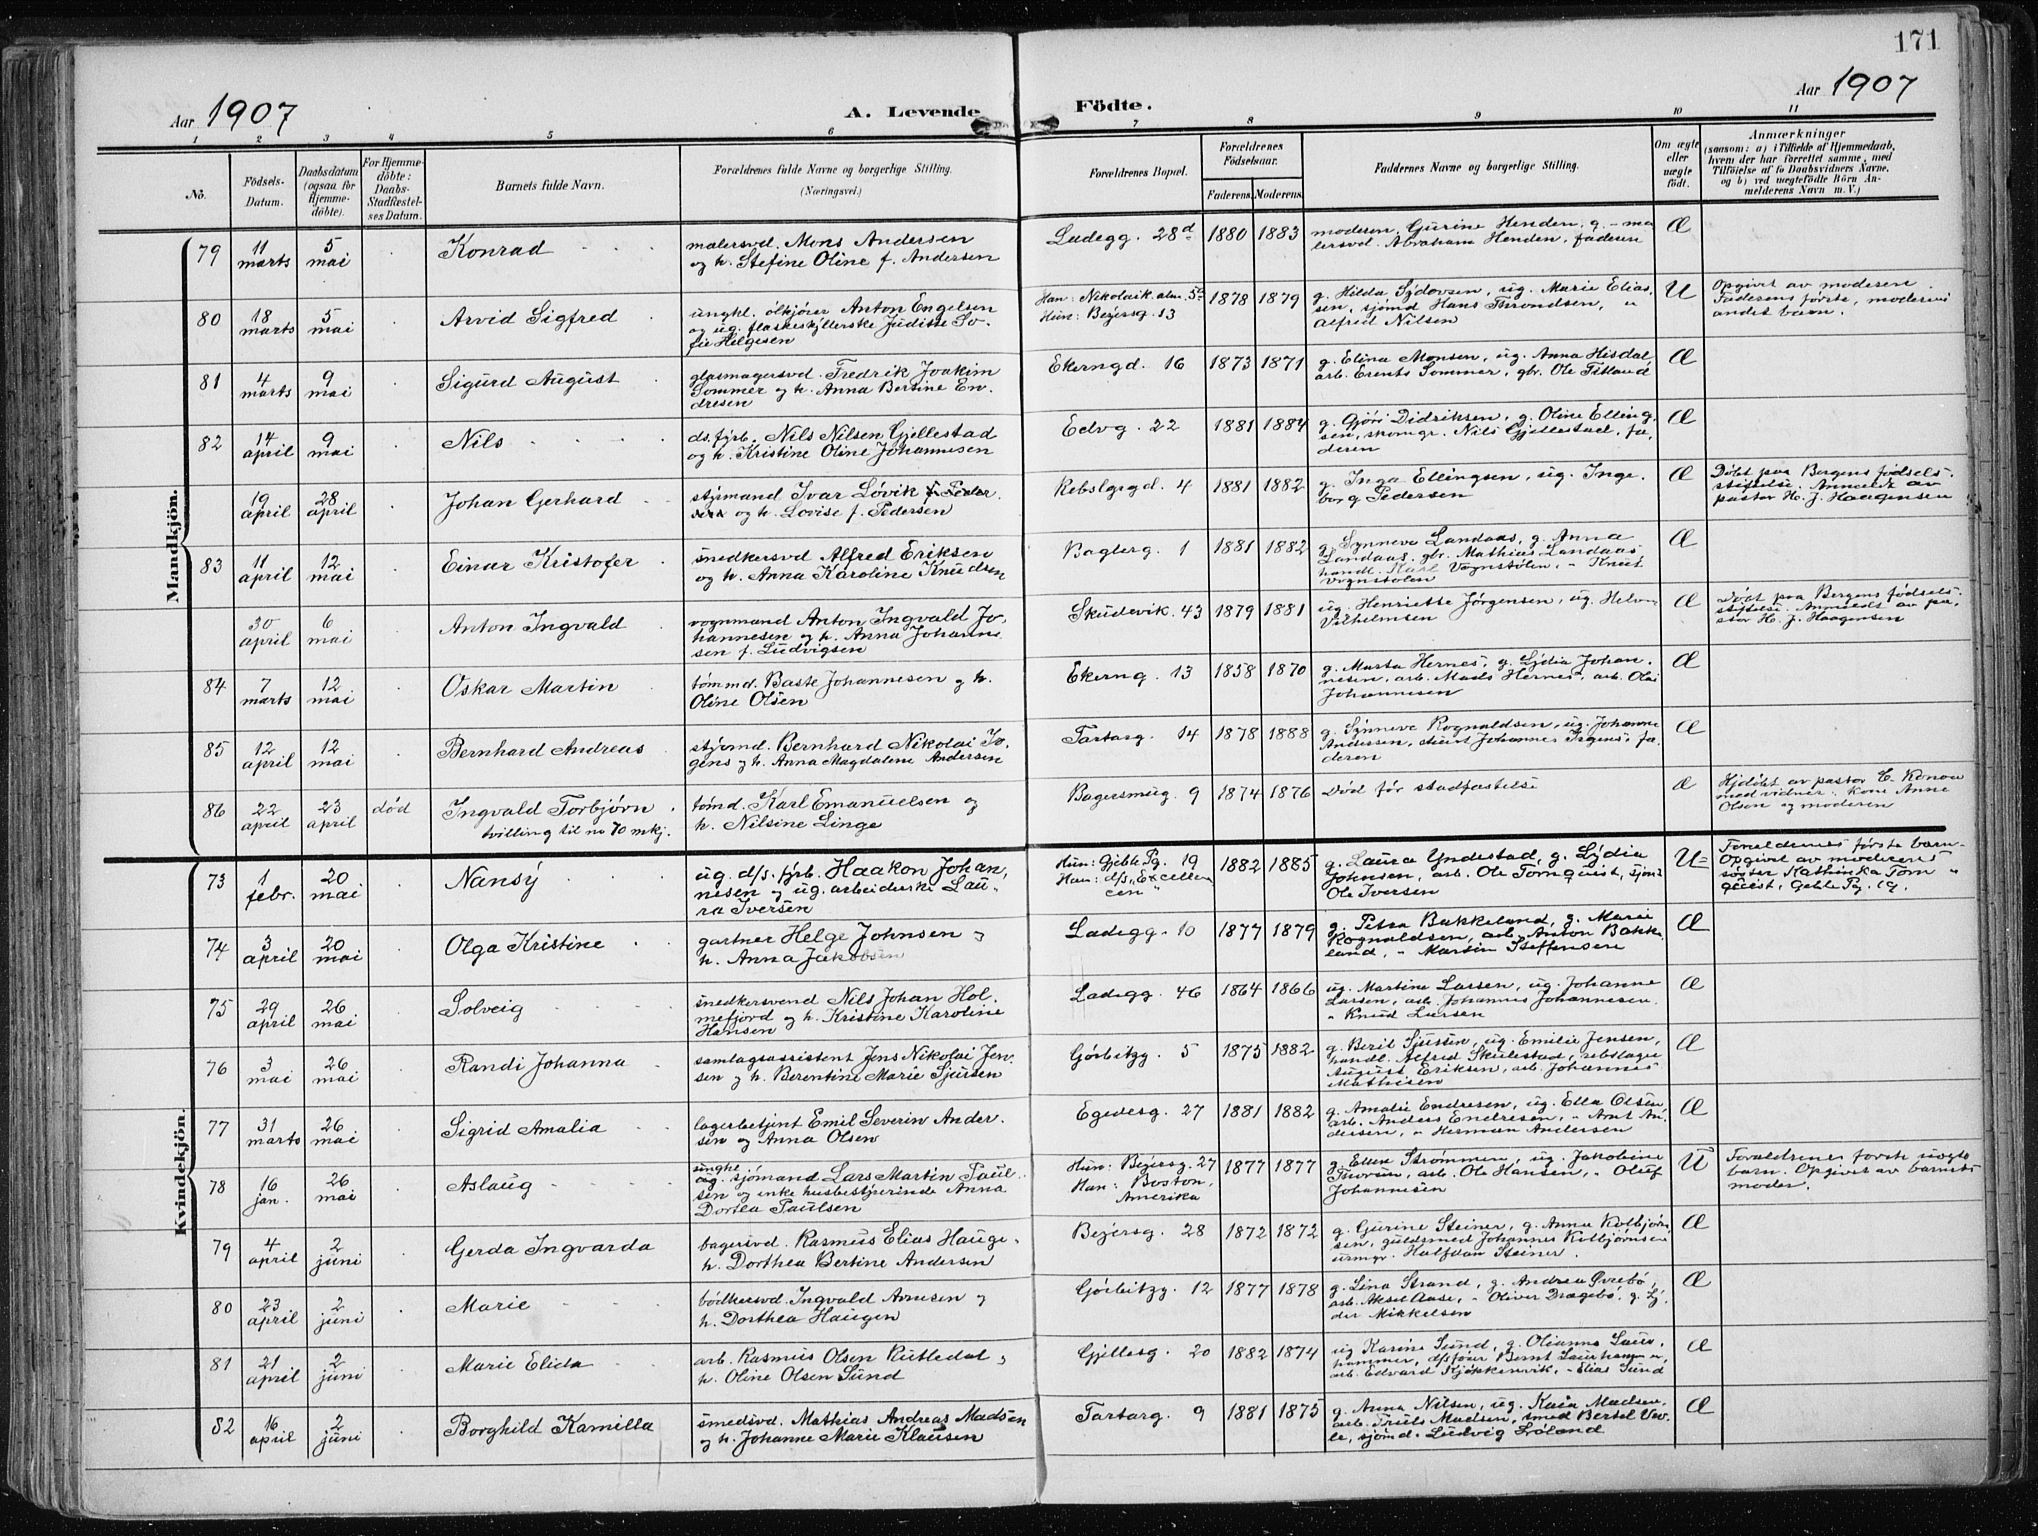 171
Aar 1907
A. Levende Födte.
Aar 1907
1 2 3 4 5 6 7 8 9 10 11
No.
Födsels-Datum.
Daabsdatum (ogsaa for Hjemmedöbte).
For Hjemmedöbte: Daabs-Stadfæstelses Datum.
Barnets fulde Navn.
Forældrenes fulde Navne og borgerlige Stilling. (Næringsvei.)
Forældrenes Bopæl.
Forældrenes Födselsaar.
Faderens. Moderens.
Faddernes Navne og borgerlige Stilling.
Om ægte eller uægte födt.
Anmærkninger
(saasom: a) i Tilfælde af Hjemmedaab, hvem der har forrettet samme, med Tilföielse af to Daabsvidners Navne, og b) ved uægtefödte Börn Anmelderens Navn m. V.)
Mandkjön.
79 11 marts 5 mai Konrad malersvd. Mons Andersen og h. Stefine Oline f. Andersen Ladegg. 28d 1880 1883 moderen, Gurine Henden, g. - malersvd. Abraham Henden, faderen Æ
80 18 marts 5 mai Arvid Sigfred ungkl. ølkjører Anton Engelsen og ug. flaskeskyllerske Judithe Sofie Helgesen Han: Nikolaik. alm. 5c Hun: Bejersg. 13 1878 1879 g. Hilda Sydovsen, ug. Marie Eliassen, sjømd. Hans Throndsen, " Alfred Nilsen U Opgivet av moderen. Faderens første, moderens andet barn.
81 4 marts 9 mai Sigurd August glasmagersvd. Fredrik Joakim Sommer og h. Anna Bertine Endresen Ekerngd. 16 1873 1871 g. Elina Monsen, ug. Anna Hisdal, arb. Erents Sommer, gbr. Ole Titland Æ
82 14 april 9 mai Nils ds. fyrb. Nils Nilsen Gjellestad og h. Kristine Oline Johannesen Edvg. 22 1881 1884 g. Gjøri Didriksen, g. Oline Ellingsen, skomgr. Nils Gjellestad, faderen Æ
19 april 28 april Johan Gerhard styrmand Ivar Løvik og h. Lovise f. Pedersen Rebslgrgd. 4 1881 1882 g. Inga Ellingsen, ug. Ingeborg Pedersen Æ Døbt paa Bergens fødselsstiftelse. Anmeldt av pastor H. J. Haagensen
83 11 april 12 mai Einar Kristofer snedkersvd Alfred Eriksen og h. Anna Karoline Knudsen Baglerg. 1 1881 1882 g. Synneve Landaas, g. Anna Landaas, gbr. Mathias Landaas, handl. Karl Vognstølen, " Knut Vognstølen Æ
30 april 6 mai Anton Ingvald vognmand Anton Ingvald Johannesen og h. Anna Johannesen f. Ludvigsen Skudevik 43 1879 1881 ug. Henriette Jørgensen, ug. Vilhelmsen Æ Døbt paa Bergens fødselsstiftelse. Anmeldt av pastor H. J. Haagensen
84 7 marts 12 mai Oskar Martin tømmd. Baste Johannesen og h. Oline Olsen Ekerng. 13 1858 1870 g. Marta Hernes, g. Lydia Johannesen, arb. Mads Hernes, arb. Olai Johannesen Æ
85 12 april 12 mai Bernhard Andreas styrmd. Bernhard Nikolai Irgens og h. Anna Magdalene Andersen Tartarg. 14 1878 1888 g. Synneve Rognaldsen, ug. Johanne Andersen, Johannes Irgens, faderen Æ
86 22 april 23 april død Ingvald Torbjørn tvilling til no 70 mkj. tømd. Karl Emanuelsen og h. Nilsine Linge Bagersmug. 9 1874 1876 Død før stadfæstelse Æ Hjdøbt av pastor E. Konow med vidner: kone Anne Olson og moderen
Kvindekjön.
73 1 febr. 20 mai Nansy ug. d/s. fyrb. Haakon Johannesen og ug. arbeiderske Laura Iversen Hun: Gjeble Pg. 19 Han: d/s. "Excellencen" 1882 1885 g. Laura Undestad, g. Lydia Johnsen, arb. Ole Tornquist, sjømd Ole Iversen U= Foreldrenes første barn. Opgivet av moderens søster Kathinka Tornquist, Geble Pg. 19.
74 3 april 20 mai Olga Kristine gartner Helge Johnsen og h. Anna Jakobsen Ladegg. 10 1877 1879 g. Petra Bakkeland, g. Marie Rognaldsen, arb. Anton Bakkeland, " Martin Steffensen Æ
75 29 april 26 mai Solveig snedkersvend Nils Johan Holmefjord og h. Kristine Karoline Hansen Ladegg. 46 1864 1866 ug. Martine Larsen, ug. Johanne Larsen, arb. Johannes Johannesen. " Knud Larsen Æ
76 3 mai 26 mai Randi Johanna samlagsassistent Jens Nikolai Jensen og h. Berentine Marie Sjursen Gørbitzg. 5 1875 1882 g. Beril Sjursen, ug. Emilie Jensen, handl. Alfred Skulestad, rebslager August Eriksen, arb. Johannes Mathisen Æ
77 31 marts 26 mai Sigrid Amalia lagerbetjent Emil Severin Andersen og Anna Olsen Egedesg. 27 1881 1882 g. Amalie Endresen, ug. Ella Olsen arb. Anders Endresen, " Arnt Andersen, " Herman Andersen Æ
78 16 jan. 26 mai Aslaug ungkl. sjømand Lars Martin Paulsen og enke husbestyrerinde Anna Dortea Paulsen Hun: Bejersg. 27 Han: Boston, Amerika 1877 1877 g. Ellen Strømmen, ug. Jakobine Thorsen, arb. Ole Hansen, " Oluf Johannesen U Forældrenes første uegte barn. Opgivet av barnets moder.
79 4 april 2 juni Gerda Ingvarda bagersvd. Rasmus Elias Hauge. h. Dorthea Bertine Andersen Bejersg. 28 1872 1872 g. Gurine Steiner, g. Anna Kolbjørnsen, guldsmed Johannes Kolbjørnsen urmgr. Halfdan Steiner. Æ
80 23 april 2 juni Marie bødkersvd. Ingvald Arnesen og h. Dorthea Haugen Gørbitzg. 12 1877 1878 g. Lina Strand, g. Andrea Øvrebø, arb. Aksel Aase, " Oliver Drægebø, g. Lyder Mikkelsen Æ
81 21 april 2 juni Marie Elida arb. Rasmus Olsen Rutledal og h. Oline Olsen Sund Gjellesg. 20 1882 1874 ug Karine Sund, g. Olianna Laurhammer, d/sfører Bernt Laurhammer arb. Edvard Kjøkkenvik, " Elias Sund Æ
82 16 april 2 juni Borghild Kamilla smedsvd. Mathias Andreas Madsen og h. Johanne Marie Klausen Tartarg. 9 1881 1875 g. Anna Nilsen, ug. Kaia Madsen, arb. Truls Madsen, smed Bertel sjømd. Ludvig Frøland Æ